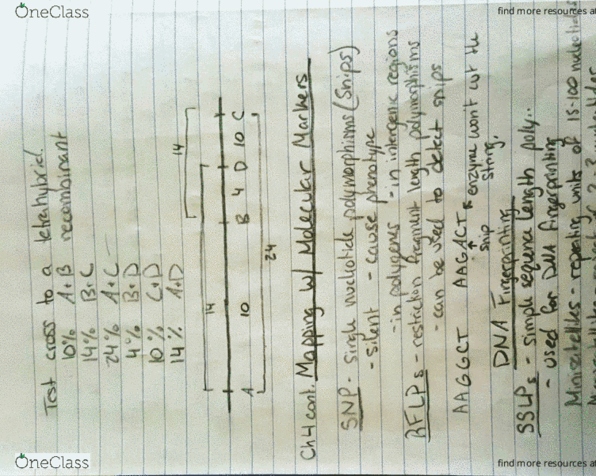 OneClass
find more resources at
Test cross to a tetrahybrid.
10% A+B recombinant
14% B+C
24% A+C
4% B+D
10% C+D
14% A+D
14
14
A 10 B 4 D 10 C
24
Ch4 cont. Mapping w/ Molecular Markers
SNP - Single nucleotide polymorphisms (Snips)
- silent - cause phenotype
- in polygenes - in intergenic regions
RFLPs - restriction fragment length polymorphisms
- can be used to detect snips
AAGGCT AAGACT enzyme wont cut the
snip string.
DNA Fingerprinting
SSLPs - Simple sequence length poly..
- used for DNA fingerprinting
Minisatellites - repeating units of 15-100 nucleotides
OneClass
find more resources at